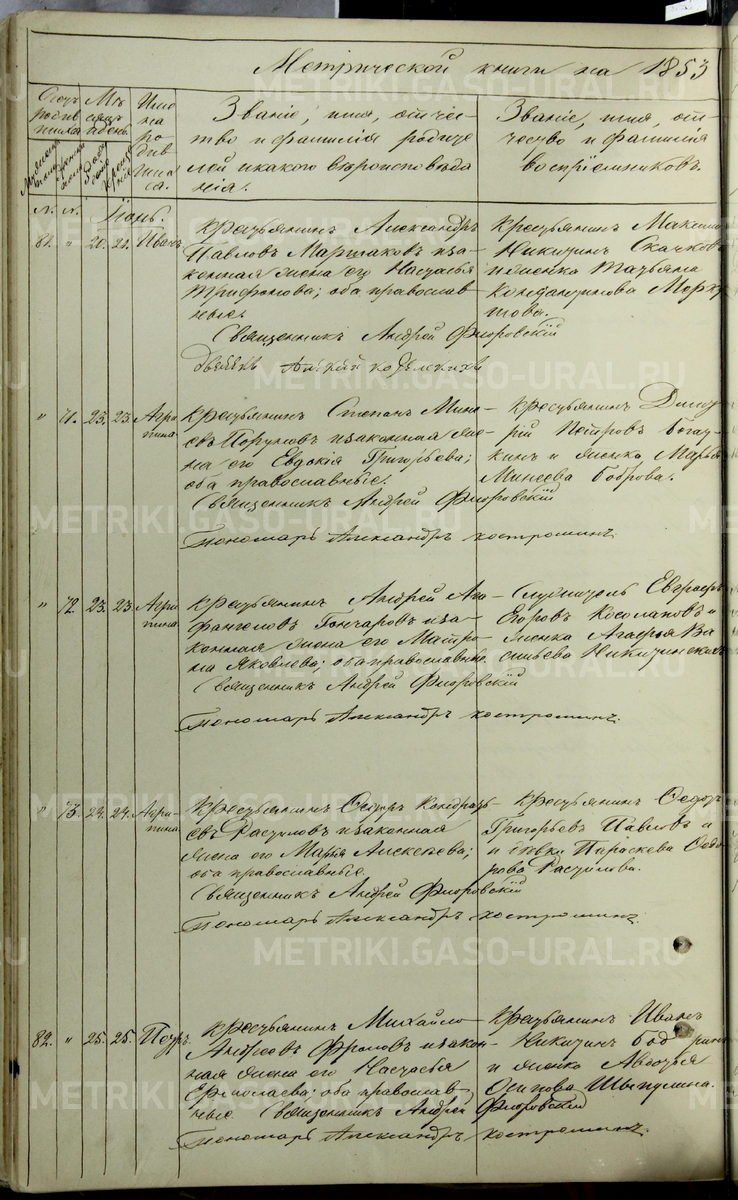 Метрической книги на 1853
Счетъ родив шихся
Мѣ сяцъ и день
Име на ро див ших ся.
Званіе, имя, отчес-
тво и фамилія родите
лей и какого вѣроисповѣда
нія.
Званіе, имя, от-
чество и фамилія
воспріемниковъ.
№. №. Іюнь.
81. " 20. 21. Иванъ
Крестьянинъ Александръ
Павловъ и за-
конная жена его Настасья
Трифонова; оба православ
ные.
Священникъ Андрей Флоровскій
Крестьянинъ Максимъ
Никитинъ Скачковъ
и женка Татьяна
Константинова Мерку
шова.
" 71. 23. 23. Агри
пина.
Крестьянинъ Степанъ Мине-
евъ и законная же-
на его Евдокія Григорьева;
оба православные.
Священникъ Андрей Флоровскій
Пономарь Александръ Костроминъ.
Крестьянинъ Димит
рій Петровъ
и женка Марья
Минеева Боброва.
" 72. 23. 23. Агри
пина.
Крестьянинъ Андрей Ага
фангеловъ Гончаровъ и за-
конная жена его Матре-
на Яковлева; оба православные
Священникъ Андрей Флоровскій
Пономарь Александръ Костроминъ.
Служитель Евграфъ
Егоровъ Косолаповъ и
женка Агафья Ва
сильева
" 73. 24. 24. Агри-
пина.
Крестьянинъ Ѳедоръ Кондрать
евъ Распуловъ и законная
жена его Марья Алексѣева;
оба православные.
Священникъ Андрей Флоровскій
Пономарь Александръ Костроминъ.
Крестьянинъ Ѳедоръ
Григорьевъ Павловъ и
и дѣвки Параскева Ѳедо
рова Распулова.
82. " 25. 25. Петръ.
Крестьянинъ Михайло
Андреевъ Фроловъ и закон
ная жена его Настасья
Ермолаева; оба православ
ные Священникъ Андрей Флоровскій
Пономарь Александръ Костроминъ.
Крестьянинъ Иванъ
Никитинъ
и женка Авдотья
Осипова Шыпулина.
METRIKI.GASO-URAL.RU